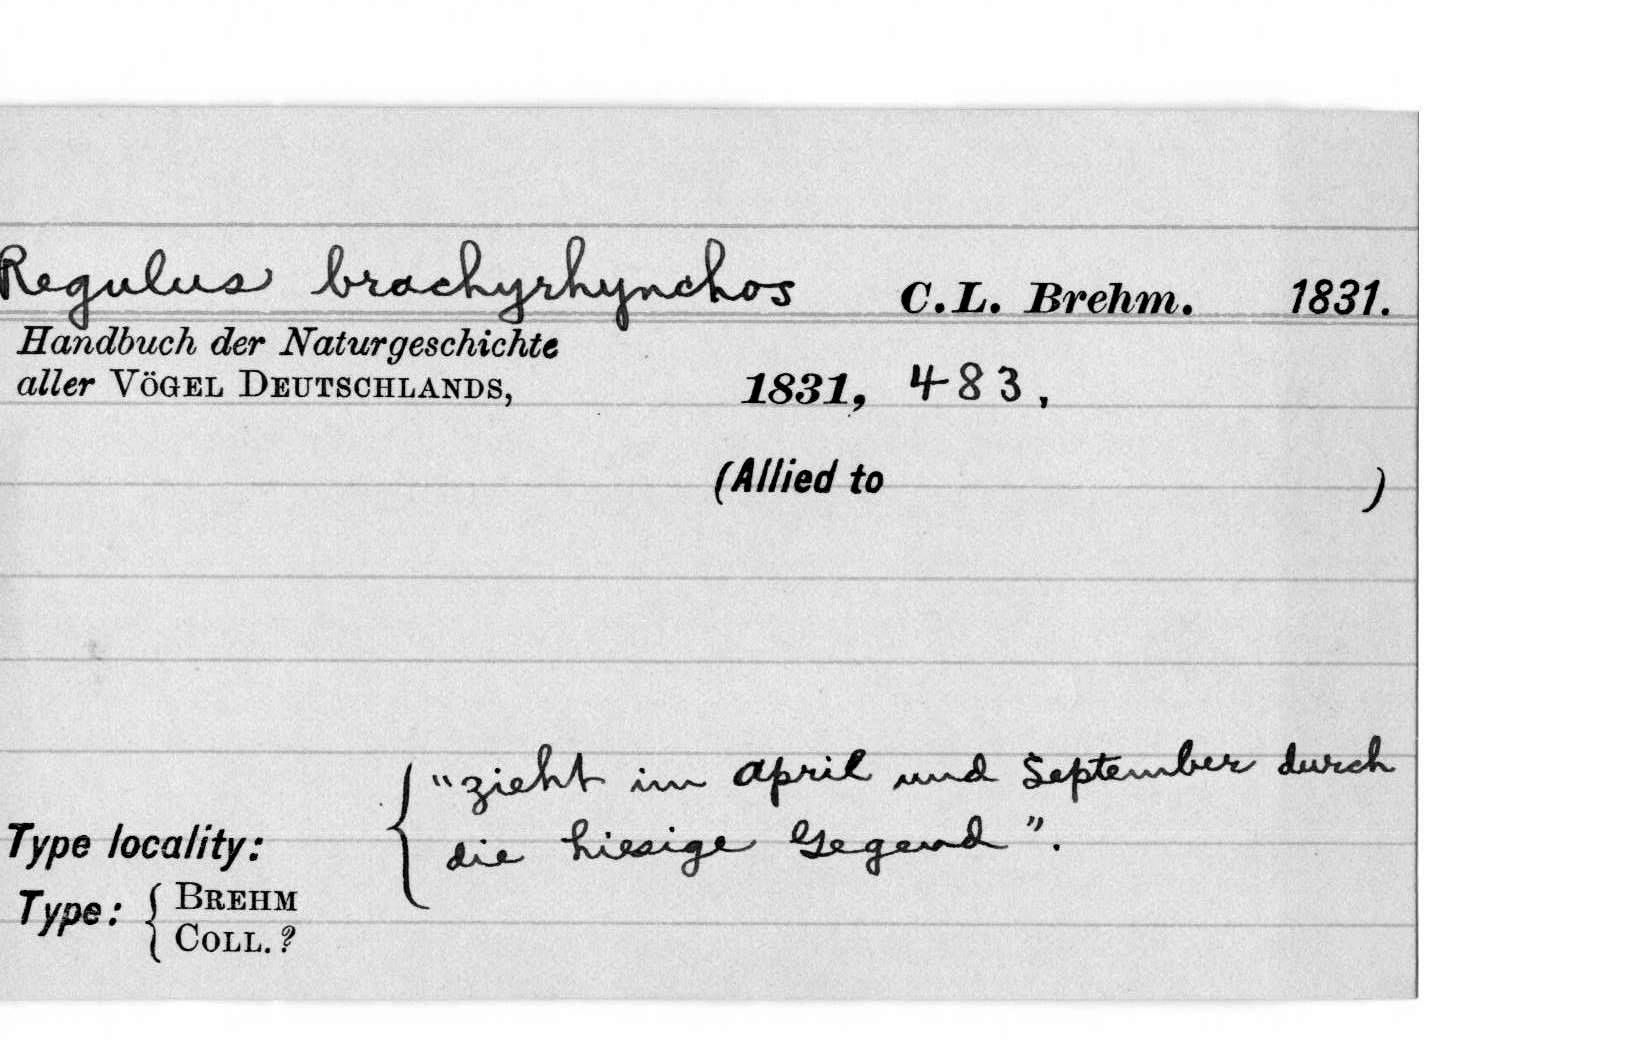 Regulus brachyrhynchos C.L. Brehm. 1831.
Handbuch der Naturgeschichte
aller VÖGEL DEUTSCHLANDS, 1831, 483,
(Allied to )
"zieht im April und September durch
die hiesige Gegend".
Type locality:
Type: { BREHM
COLL. ?